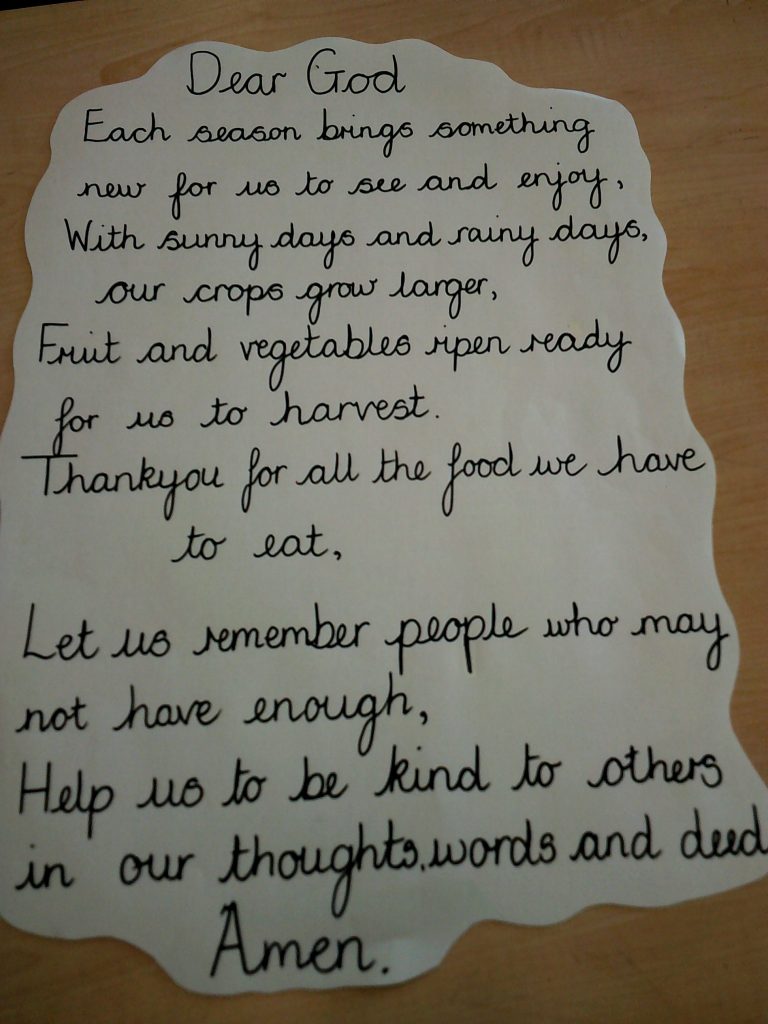 Dear God
Each season brings something
new for us to see and enjoy,
With sunny days and rainy days,
our crops grow larger,
Fruit and vegetables ripen ready
for us to harvest.
Thankyou for all the food we have
to eat,
Let us remember people who may
not have enough,
Help us to be kind to others
in our thoughts,words and deed
Amen.